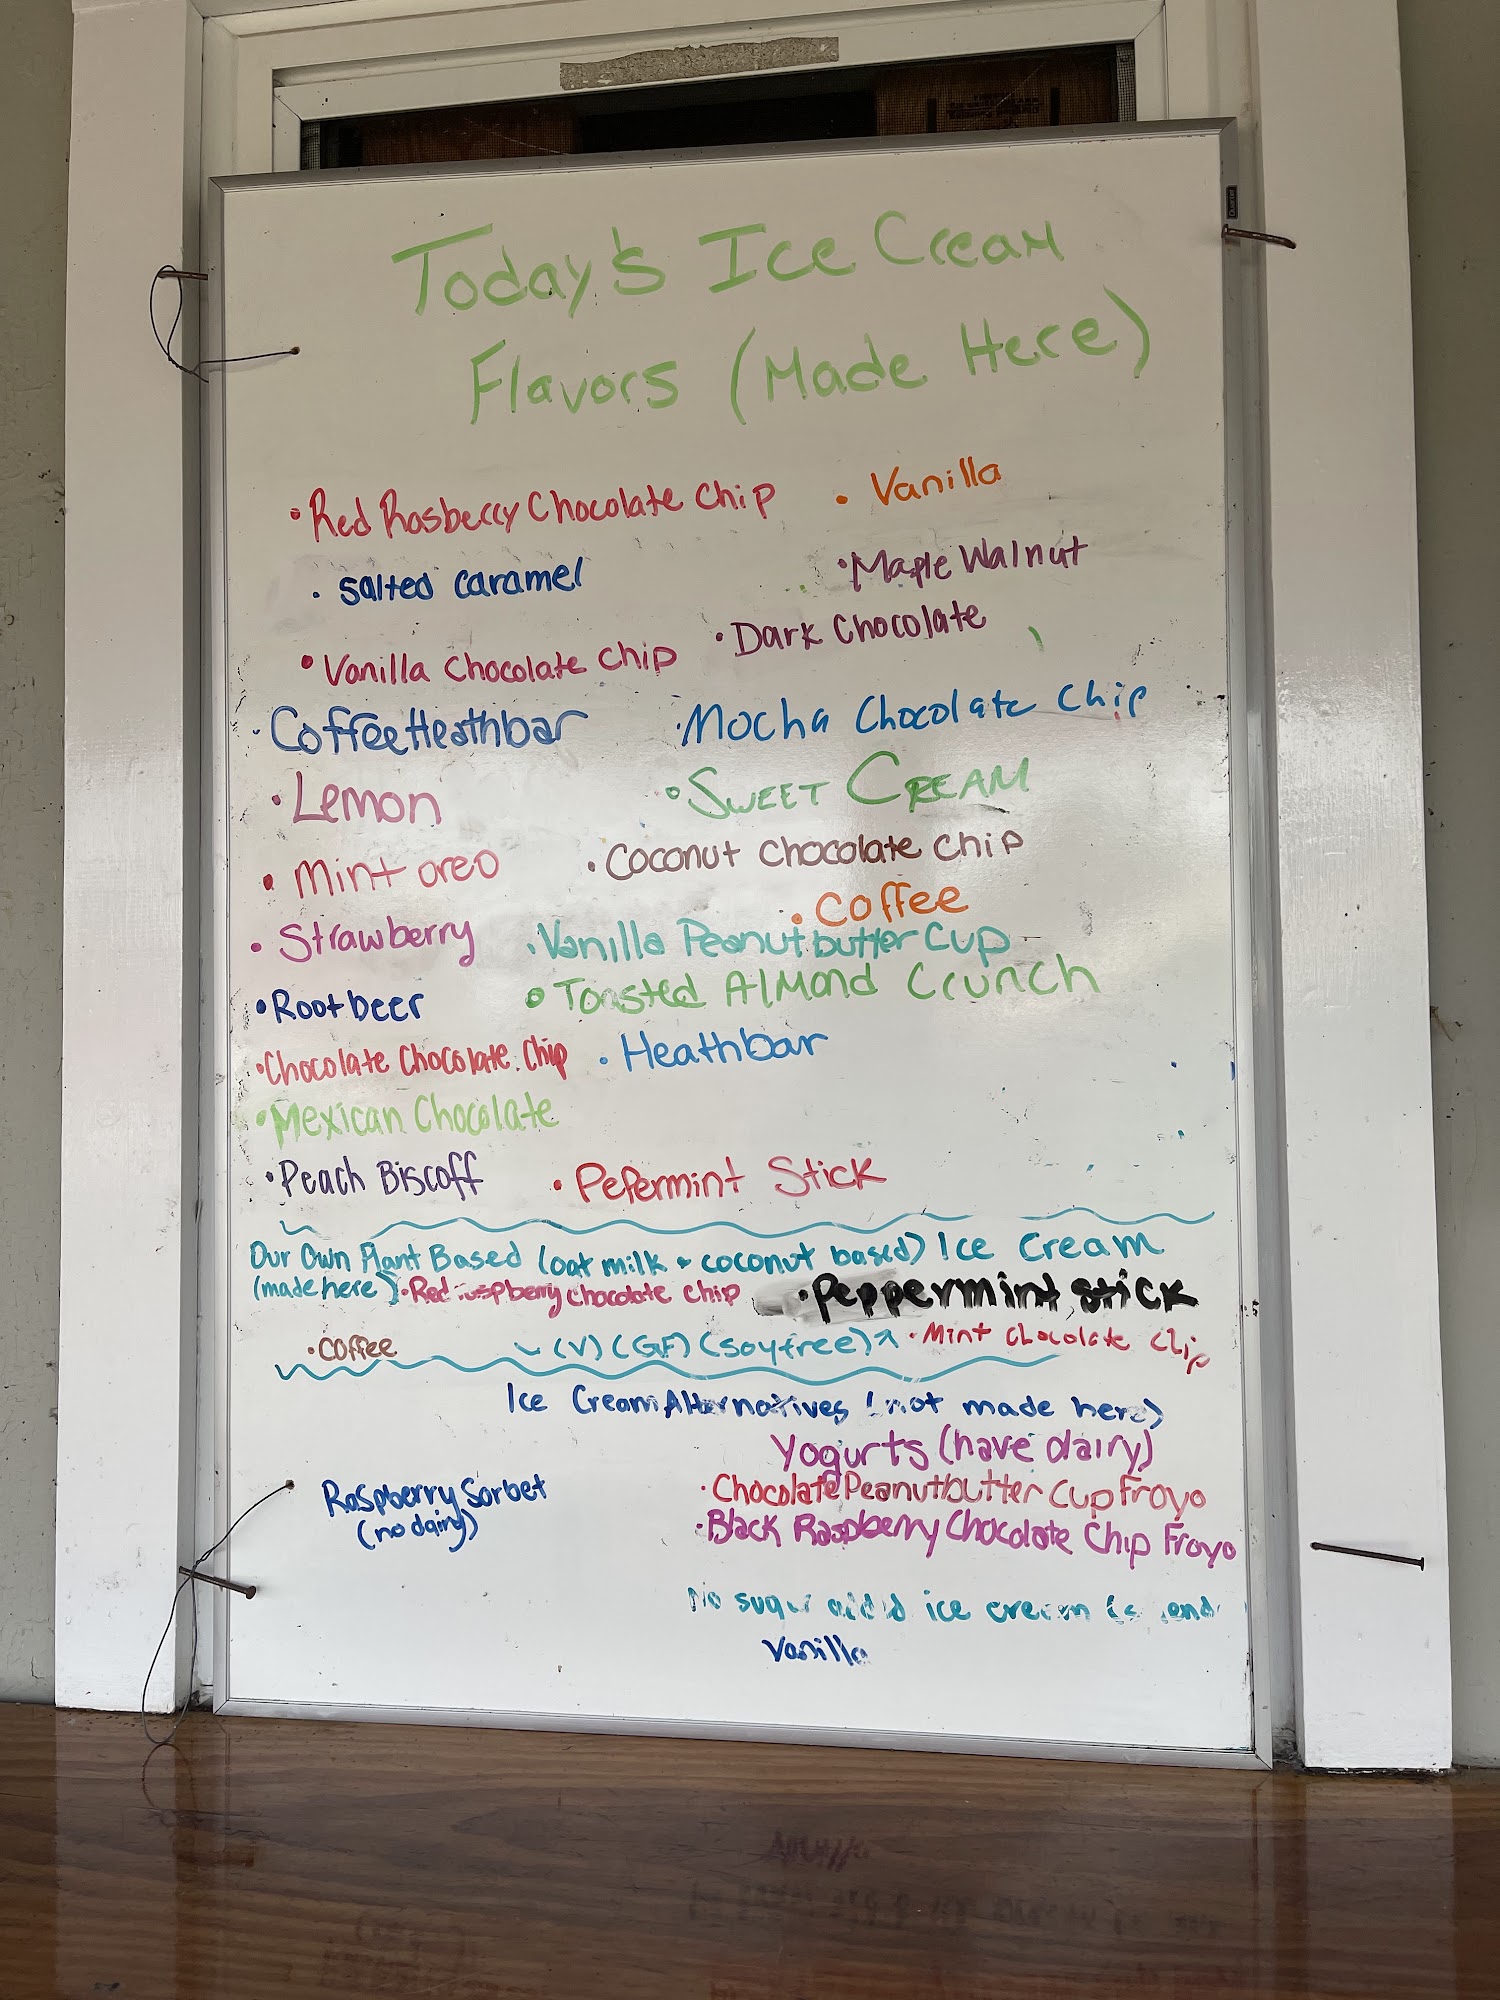 Today's Ice Cream
Flavors (Made Here)
• Red Rasberry Chocolate Chip
• Vanilla
• Salted Caramel
• Maple Walnut
• Vanilla Chocolate Chip
• Dark Chocolate
• Coffee Heathbar
• Mocha Chocolate Chip
• Lemon
• SWEET CREAM
• Mint oreo
• Coconut Chocolate Chip
• Coffee
• Strawberry
• Vanilla Peanutbutter Cup
• Rootbeer
• Toasted Almond Crunch
• Chocolate Chocolate Chip
• Heathbar
• Mexican Chocolate
• Peach Biscoff
• Pepermint Stick
Our Own Plant Based (oat milk + coconut based) Ice Cream
(made here) • Red raspberry chocolate chip
• Peppermint stick
• Coffee
(V) (GF) (soy free)
• Mint Chocolate Chip
Ice Cream Alternatives (not made here)
Yogurts (have dairy)
Raspberry Sorbet
(no dairy)
• Chocolate Peanutbutter Cup Froyo
• Black Raspberry Chocolate Chip Froyo
No sugar added ice cream
Vanilla
Quartet